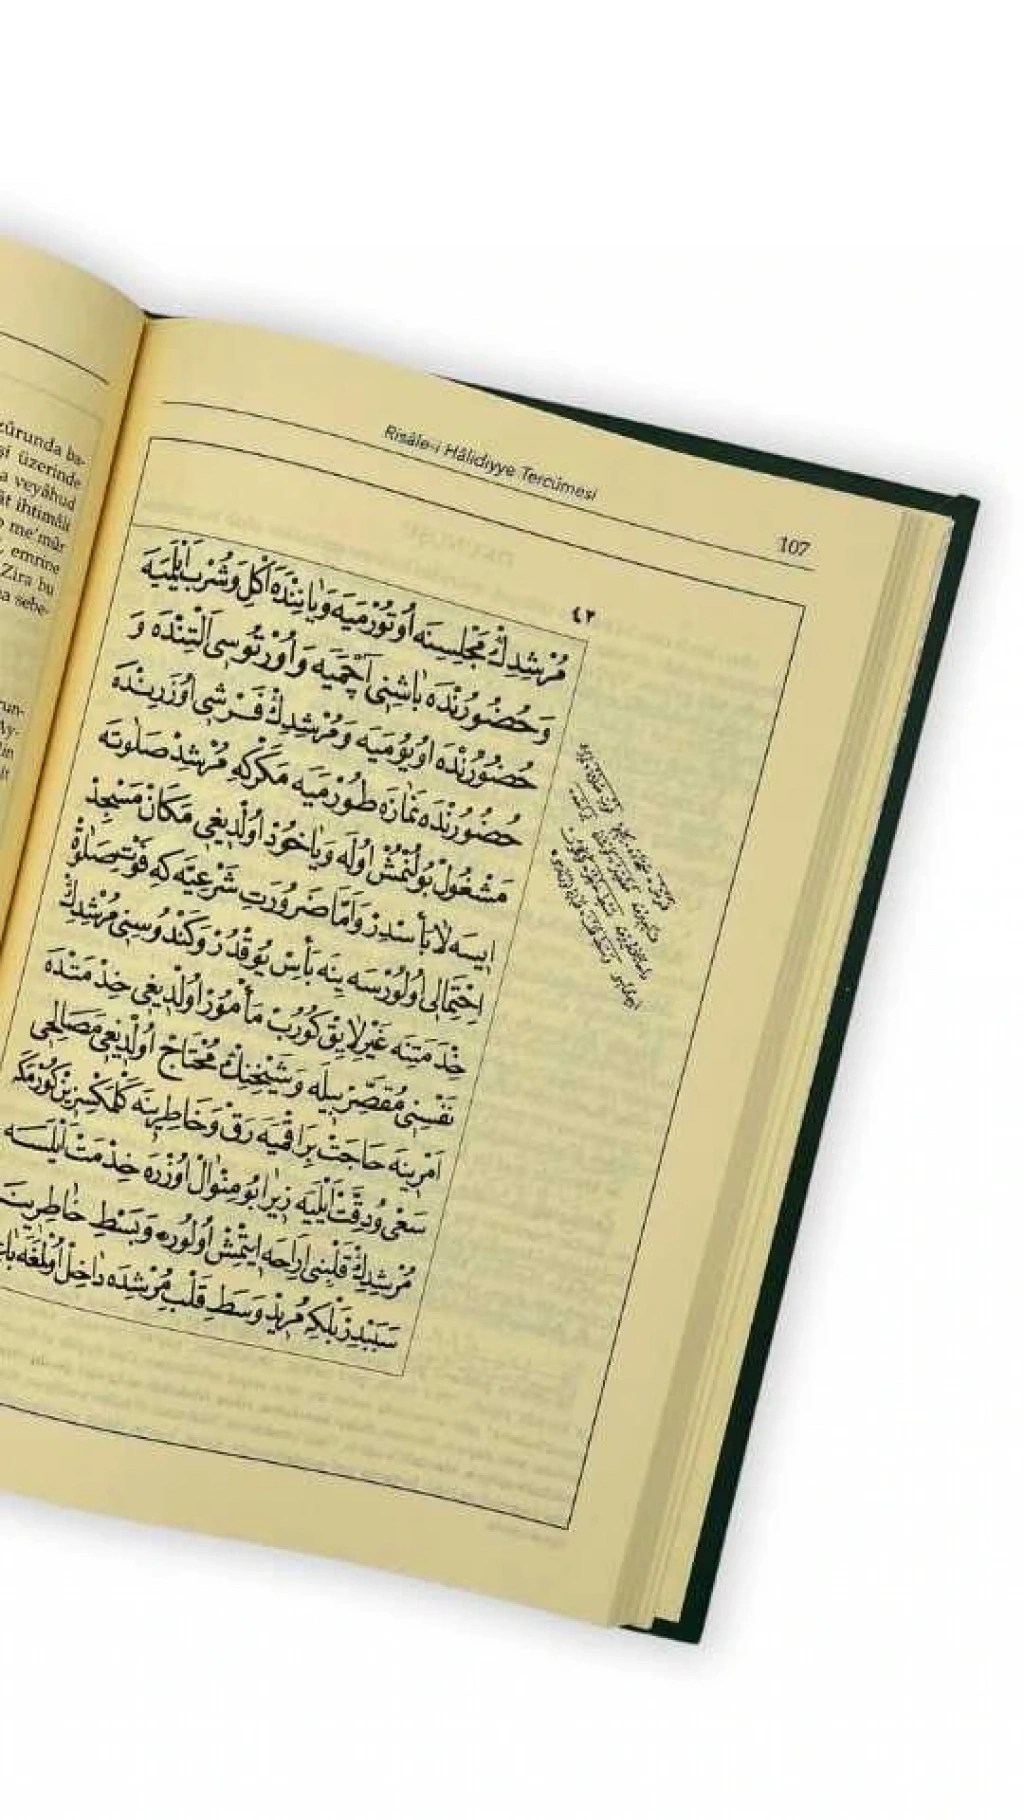 zûrunda ba-
şi üzerinde
a veyâhud
ât ihtimâli
me'mûr
emrine
Zira bu
sebe-
run-
Ay-
Risâle-i Hâlidiyye Tercümesi
107
٤٢
مُرْشِدِكْ مَجْلِسِنَه اُوتُورْمِيَه وَيَانِنْدَه اَكْل وَشُرْب اَيْلَمِيَه
وَحُضُورُنْدَه بَاشِنِى اَچْمِيَه وَاُورْتُوسِى اَلْتِنْدَه وَ
حُضُورُنْدَه اُويُومِيَه وَمُرْشِدِكْ فَرْشِى اُوزَرِينْدَه
حُضُورُنْدَه نَمَازَه طُورْمِيَه مَكَرْكِه مُرْشِدْ صَلٰوتَه
مَشْغُولْ بُولُنْمُشْ اُولَه وَيَاخُودْ اُولْدِيغِى مَكَانْ مَسْجِدْ
اِيسَه لَا بَأْسَدِرْ وَاَمَّا ضَرُورَتِ شَرْعِيَّه كِه فَوْتِ صَلٰوةْ
اِحْتِمَالِى اُولُورْسَه يِنَه بَأْسْ يُوقْدُرْ وَكَنْدُوسِنِى مُرْشِدِكْ
خِدْمَتِنَه غَيْرِ لَايِقْ كُورُبْ مَأْمُورْ اُولْدِيغِى خِدْمَتْدَه
نَفْسِنِى مُقَصِّرْ بِيلَه وَشَيْخِنِكْ مُحْتَاجْ اُولْدِيغِى مَصَالِحِى
اَمْرِينَه حَاجَتْ بِرَاقْمِيَه رَقْ وَخَاطِرِينَه كَلْمَكْسِزِينْ كُورْمَكَه
سَعْى وُ دِقَّتْ اَيْلِيَه زِيرَا بُو مِنْوَالْ اُوزْرَه خِدْمَتْ اَيْلَسَه
مُرْشِدِكْ قَلْبِنِى اِرَاحَه اِيتْمِشْ اُولُورْ وَبَسْطِ خَاطِرِينَه
سَبَبْدِرْ بَلْكِه مُرِيدْ وَسَطِ قَلْبِ مُرْشِدَه دَاخِلْ اُولْمَغَه